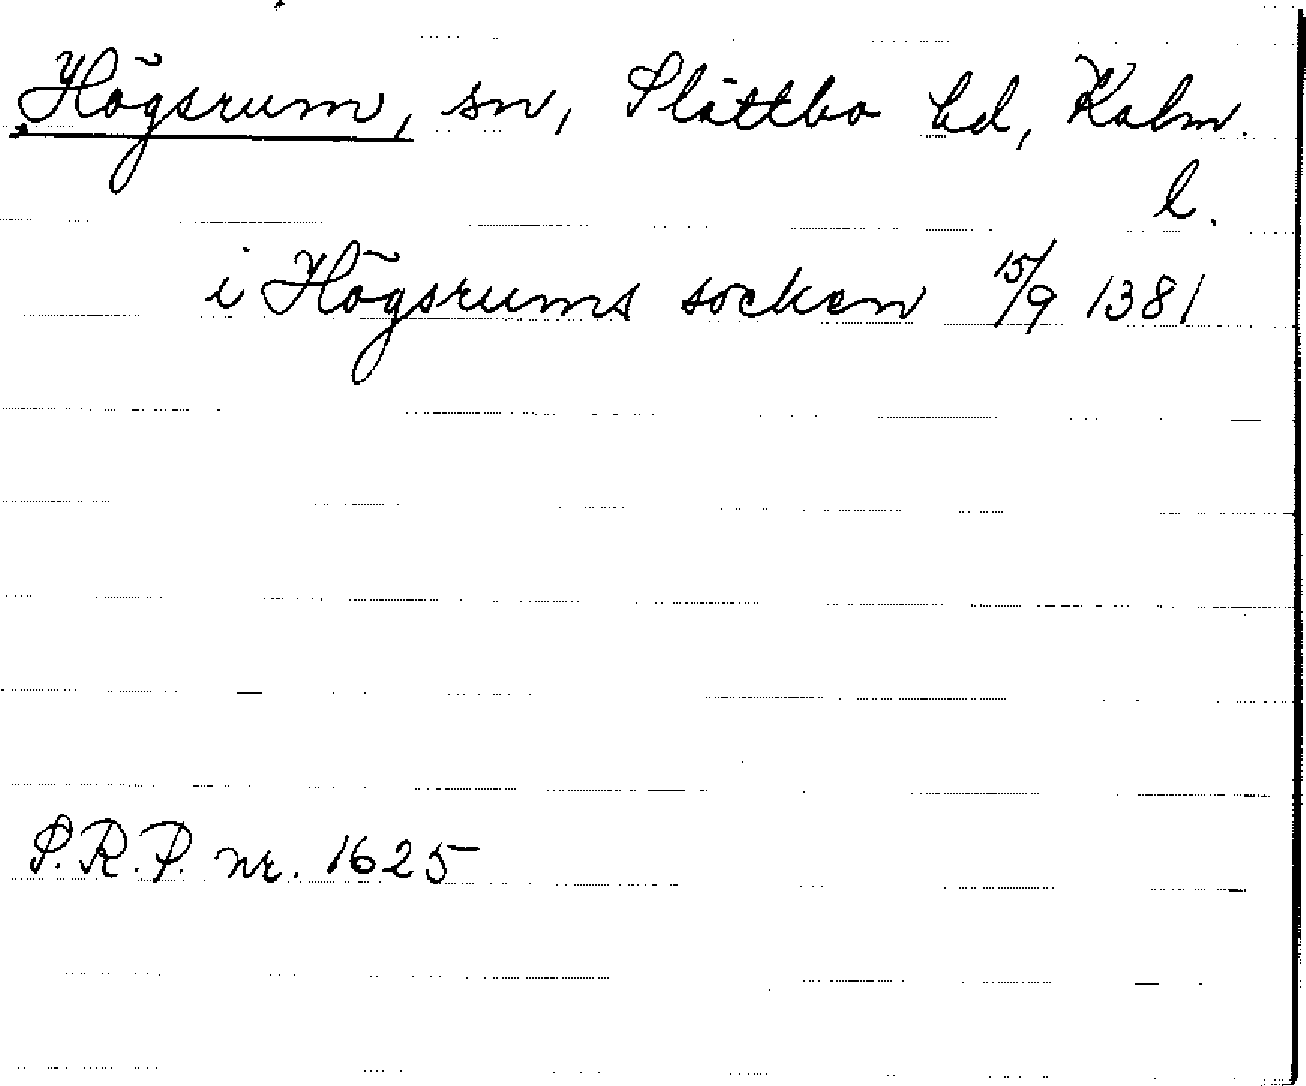 Högsrum, sn, Slättbo hd, Kalm.
l.
i Högsrums socken 15/9 1381
S.R.P. nr. 1625